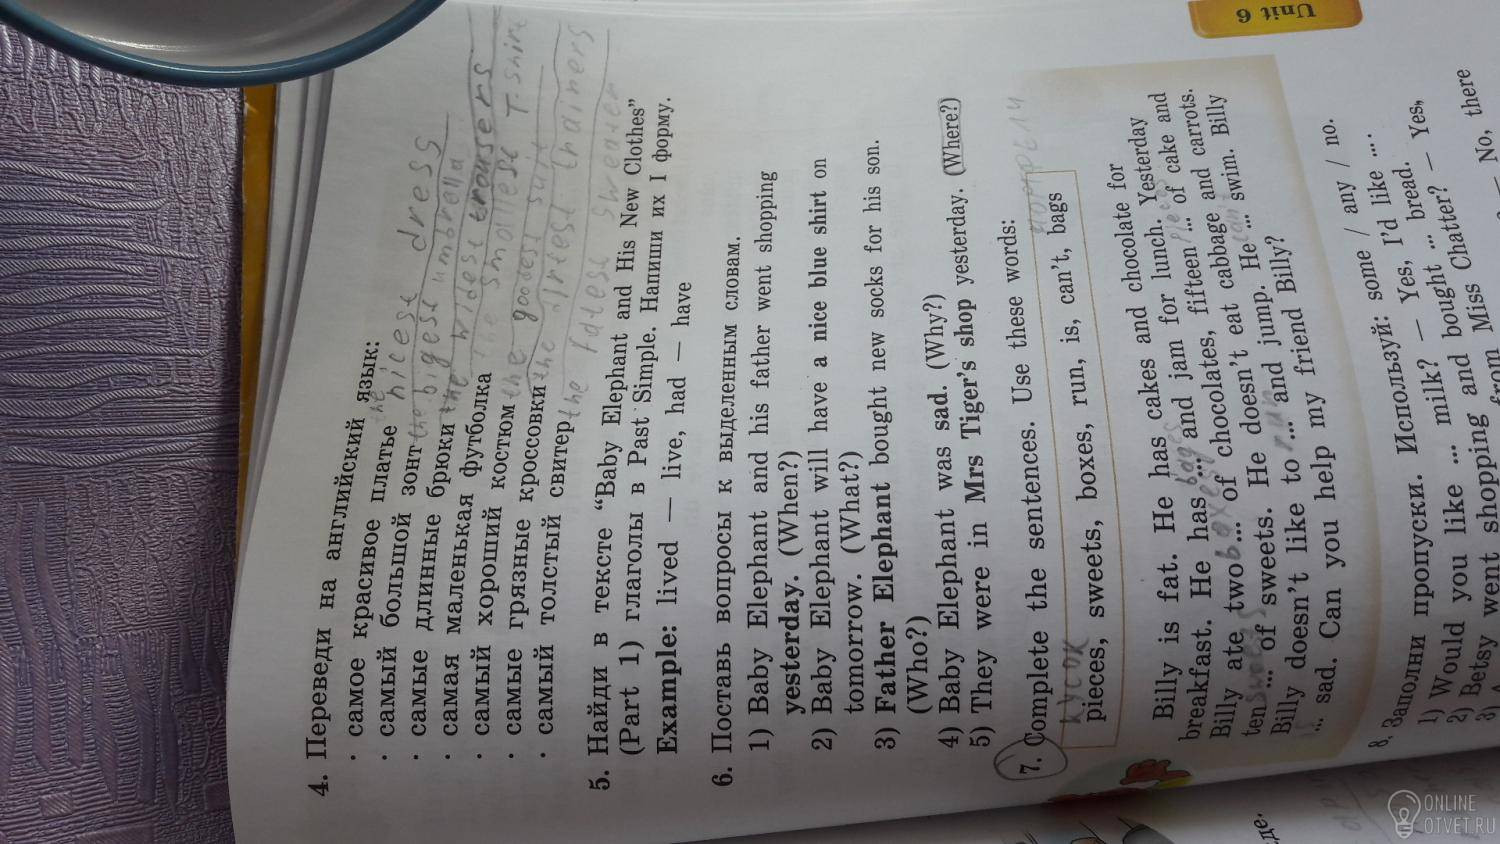 4. Переведи на английский язык:
· самое красивое платье the nicest dress
· самый большой зонт the bigest umbrella
· самые длинные брюки the widest trousers
· самая маленькая футболка the smallest T-shirt
· самый хороший костюм the goodest suit
· самые грязные кроссовки the driest trainers
· самый толстый свитер the fatest sweater
5. Найди в тексте “Baby Elephant and His New Clothes”
(Part 1) глаголы в Past Simple. Напиши их I форму.
Example: lived — live, had — have
6. Поставь вопросы к выделенным словам.
1) Baby Elephant and his father went shopping
yesterday. (When?)
2) Baby Elephant will have a nice blue shirt on
tomorrow. (What?)
3) Father Elephant bought new socks for his son.
(Who?)
4) Baby Elephant was sad. (Why?)
5) They were in Mrs Tiger’s shop yesterday. (Where?)
7. Complete the sentences. Use these words:
кусок
pieces, sweets, boxes, run, is, can’t, bags
Billy is fat. He has cakes and chocolate for
breakfast. He has ... and jam for lunch. Yesterday
bages pieces
Billy ate two ... of chocolates, fifteen ... of cake and
boxes
ten ... of sweets. He doesn’t eat cabbage and carrots.
sweets
Billy doesn’t like to ... and jump. He ... swim. Billy
run can't
... sad. Can you help my friend Billy?
is
8. Заполни пропуски. Используй: some / any / no.
1) Would you like ... milk? — Yes, I’d like ... .
2) Betsy went shopping and bought ... bread. — Yes,
3) from Miss Chatter? — No, there
Unit 6
ONLINE
OTVET.RU